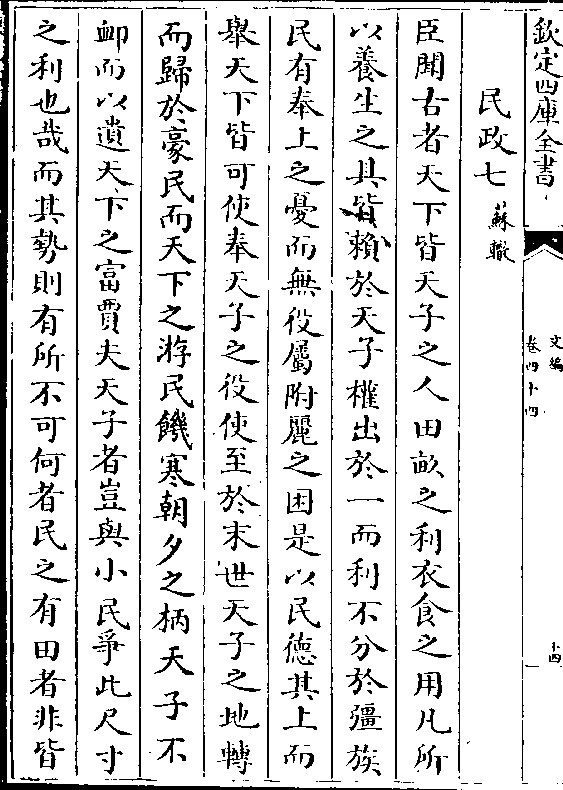 欽定四庫全書
文編
卷四十四
十四
民政七 蘇轍
臣聞古者天下皆天子之人田畝之利衣食之用凡所
以養生之具皆賴於天子權出於一而利不分於彊族
民有奉上之憂而無役屬附麗之困是以民德其上而
舉天下皆可使奉天子之役使至於末世天子之地轉
而歸於豪民而天下之游民饑寒朝夕之柄天子不
卹而以遺天下之富賈夫天子者豈與小民爭此尺寸
之利也哉而其勢則有所不可何者民之有田者非皆